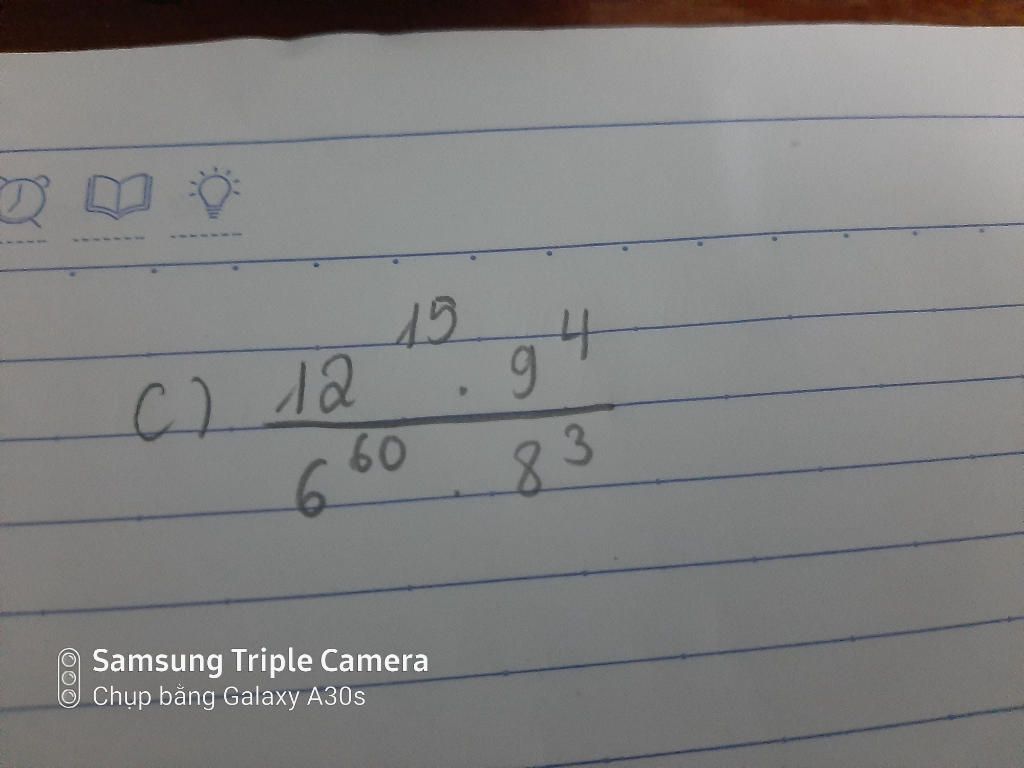 C) \frac{12^{15} . 9^4}{6^{60} . 8^3}
Samsung Triple Camera
Chụp bằng Galaxy A30s